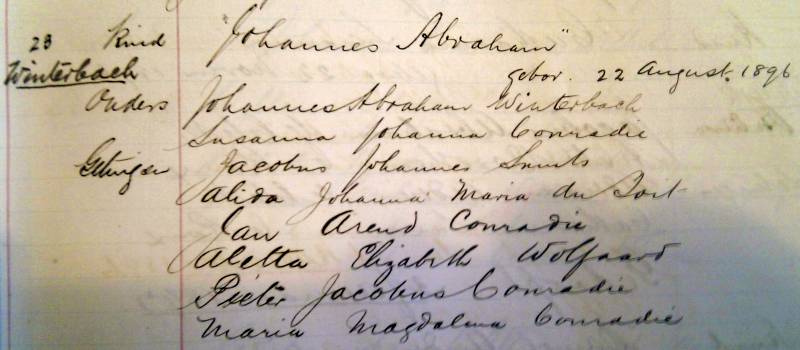 23 Kind "Johannes Abraham"
Winterbach gebor. 22 August. 1896
Ouders Johannes Abraham Winterbach
Susanna Johanna Conradie
Getuigen Jacobus Johannes Smuts
Alida Johanna Maria du Toit
Jan Arend Conradie
Aletta Elizabeth Wolfaard
Pieter Jacobus Conradie
Maria Magdalena Conradie